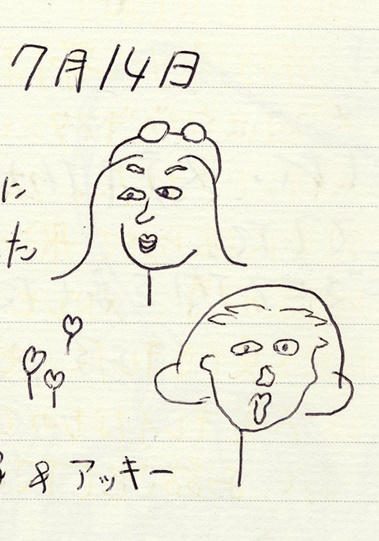 7月14日
に
た
& アッキー